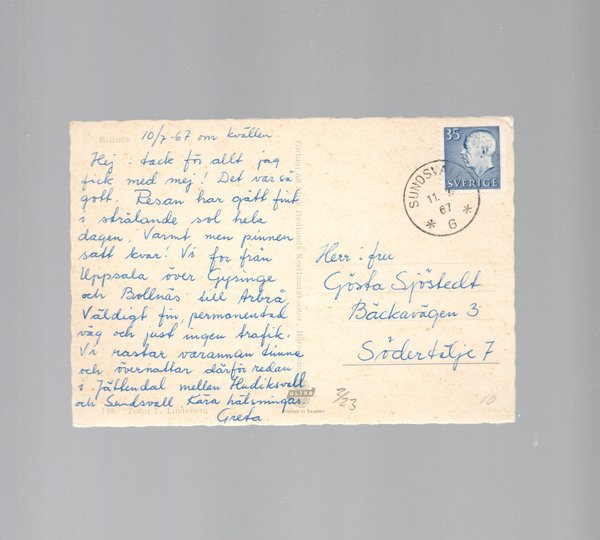 Bollnäs
10/7-67 om kvällen.
Hej! tack för allt jag
fick med mej! Det var så
gott. Resan har gått fint
i strålande sol hela
dagen. Varmt men pinnen
satt kvar! Vi for från
Uppsala över Gysinge
och Bollnäs till Arbrå,
Väldigt fin permanentad
väg och just ingen trafik.
Vi rastar varannan timme
och övernattar därför redan
i Jättendal mellan Hudiksvall
och Sundsvall Kära hälsningar
Greta.
198 Foto: T. Lindeberg
Printed in Sweden
ULTRA
2/23
35
SVERIGE
SUNDSVA
11.
67
* G *
Herr o fru
Gösta Sjöstedt
Bäckavägen 3
Södertälje 7
10